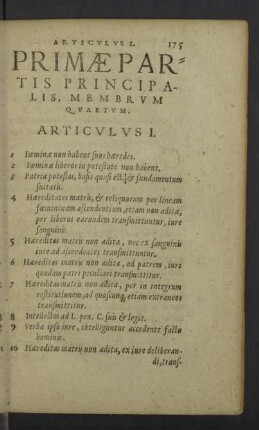 ARTICVLVS I. 175
PRIMÆ PAR-
TIS PRINCIPA-
LIS, MEMBRVM
QVARTVM.
ARTICVLVS I.
1 Fœminæ non habent suos hæredes.
2 Fœminæ liberos in potestate non habent.
3 Patria potestas, basis quasi est, & fundamentum
suitatis.
4 Hæreditates matris, & reliquorum per lineam
fœmininam ascendentium, etiam non aditæ,
per liberos earundem transmittuntur, iure
sanguinis.
5 Hæreditas matris non adita, nec ex sanguinis
iure ad ascendentes transmittuntur.
6 Hæreditas matris non adita, ad patrem, iure
quodam patri peculiari transmittitur.
7 Hæreditas matris non adita, per in integrum
restitutionem, ad quoscunq, etiam extraneos
transmittitur.
8 Intellectus ad L. pen. C. suis & legit.
9 Verba ipso iure, intelliguntur accedente facto
hominis.
10 Hæreditas matris non adita, ex iure deliberan-
di, trans-